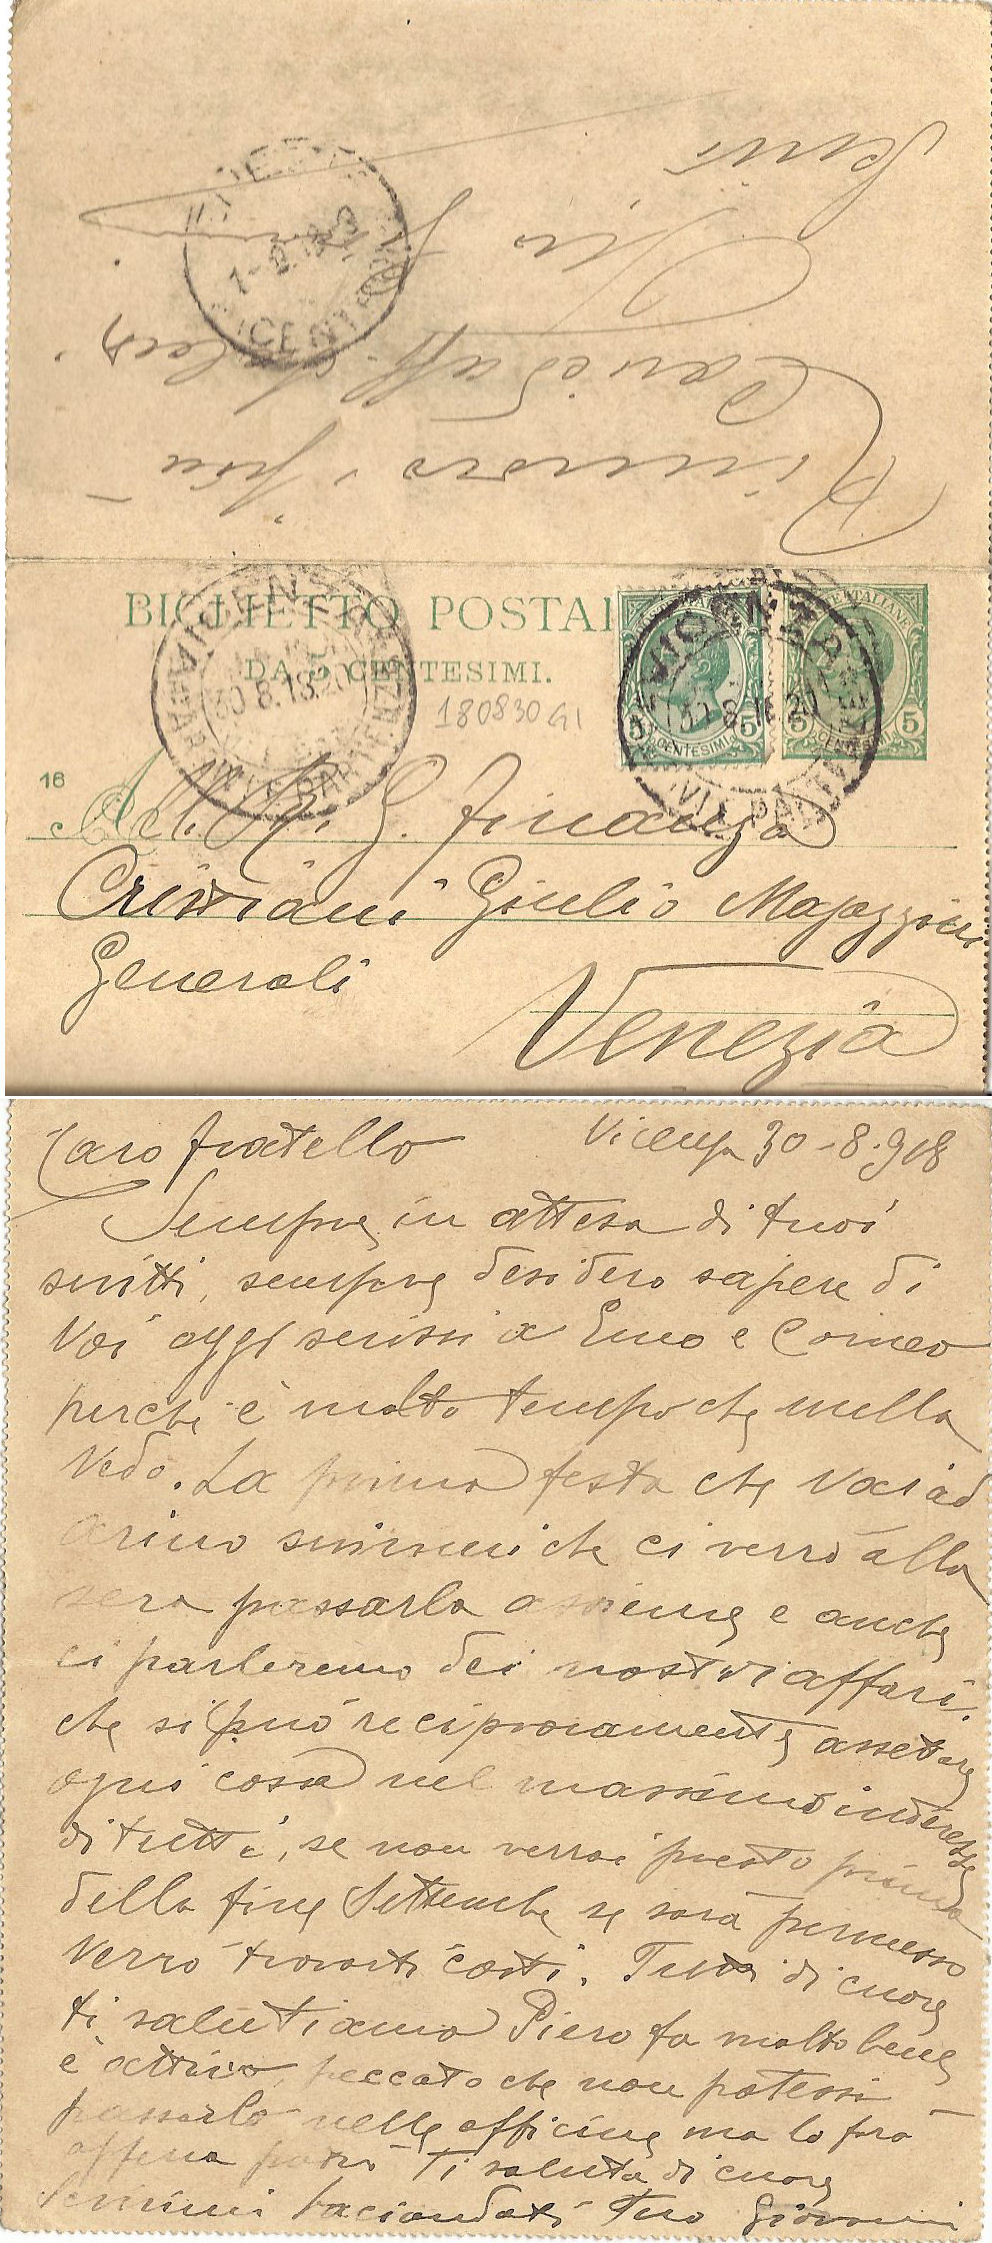 Scrivi
Tuo
Rinnovo i più
Cari affettuosi
VICENZA
BIGLIETTO POSTAL
DA 5 CENTESIMI.
VICENZA
30.8.18.20
ARRIVI E PARTENZE
5 CENTESIMI 5
5 CENTESIMI 5
180830G1
16
Al. R. G. Finanza
Cristiani Giulio Magazzini
Generali
Venezia
Caro fratello Vicenza 30-8-918
Sempre in attesa di tuoi
scritti, sempre desidero sapere di
Voi oggi scrissi a Enno e Corneo
perché è molto tempo che nulla
Vedo. La prima festa che vai ad
Arino scrivimi che ci verrò alla
sera passarla assieme e anche
ci parleremo dei nostri affari.
che si può reciprocamente assettare
ogni cossa nel massimo interesse
di tutti, se non verrai presto prima
della fine Settembre se sarà permesso
Verrò trovarti costì. Tutti di cuore
ti salutiamo Piero fa molto bene
è attivo, peccato che non potessi
passarlo nelle officine ma lo farò
appena potrò Ti saluta di cuore
Scrivimi baciandoti Tuo Giovanni